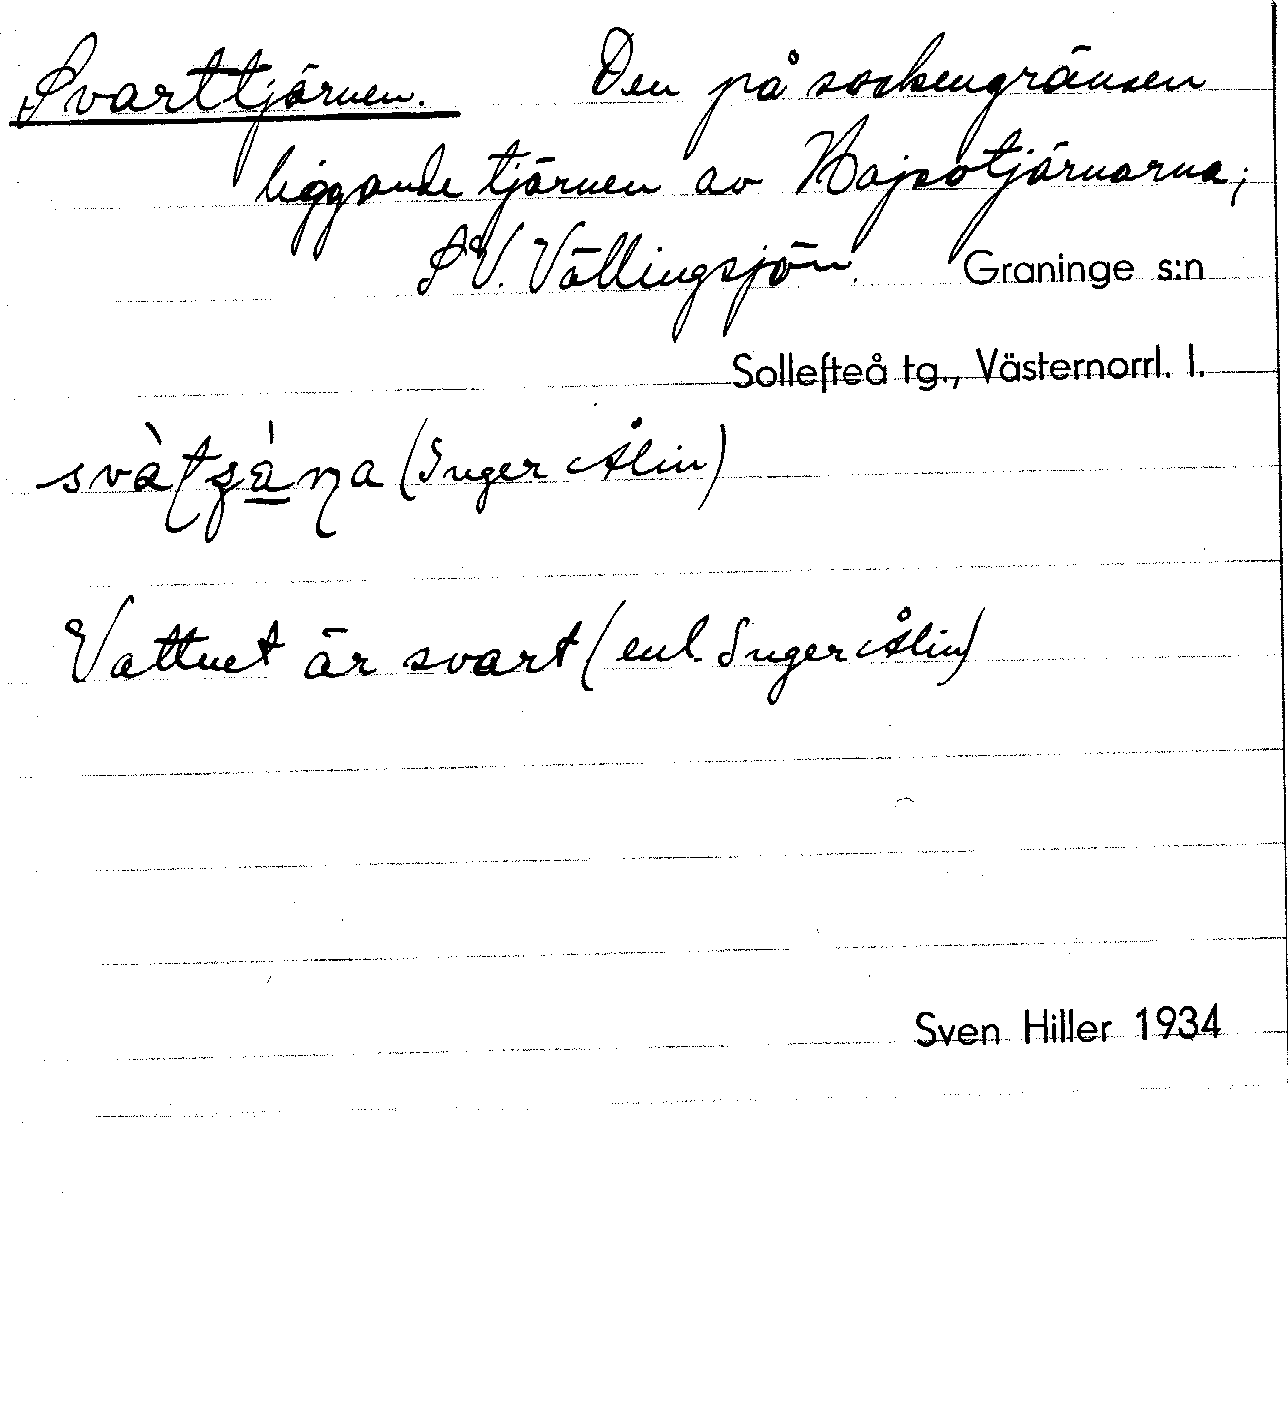 Svarttjärnen. Den på sockengränsen
liggande tjärnen av Kajsotjärnarna;
SV. Vällingsjön. Graninge s:n
Sollefteå tg., Västernorrl. l.
(Inger Ålin)
Vattnet är svart (enl. Inger Ålin)
Sven Hiller 1934